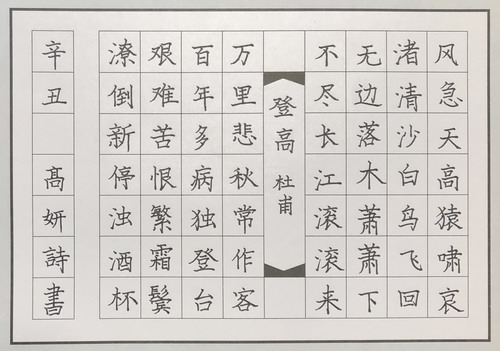 风急天高猿啸哀
渚清沙白鸟飞回
无边落木萧萧下
不尽长江滚滚来
登高 杜甫
万里悲秋常作客
百年多病独登台
艰难苦恨繁霜鬓
潦倒新停浊酒杯
辛丑 髙妍詩書